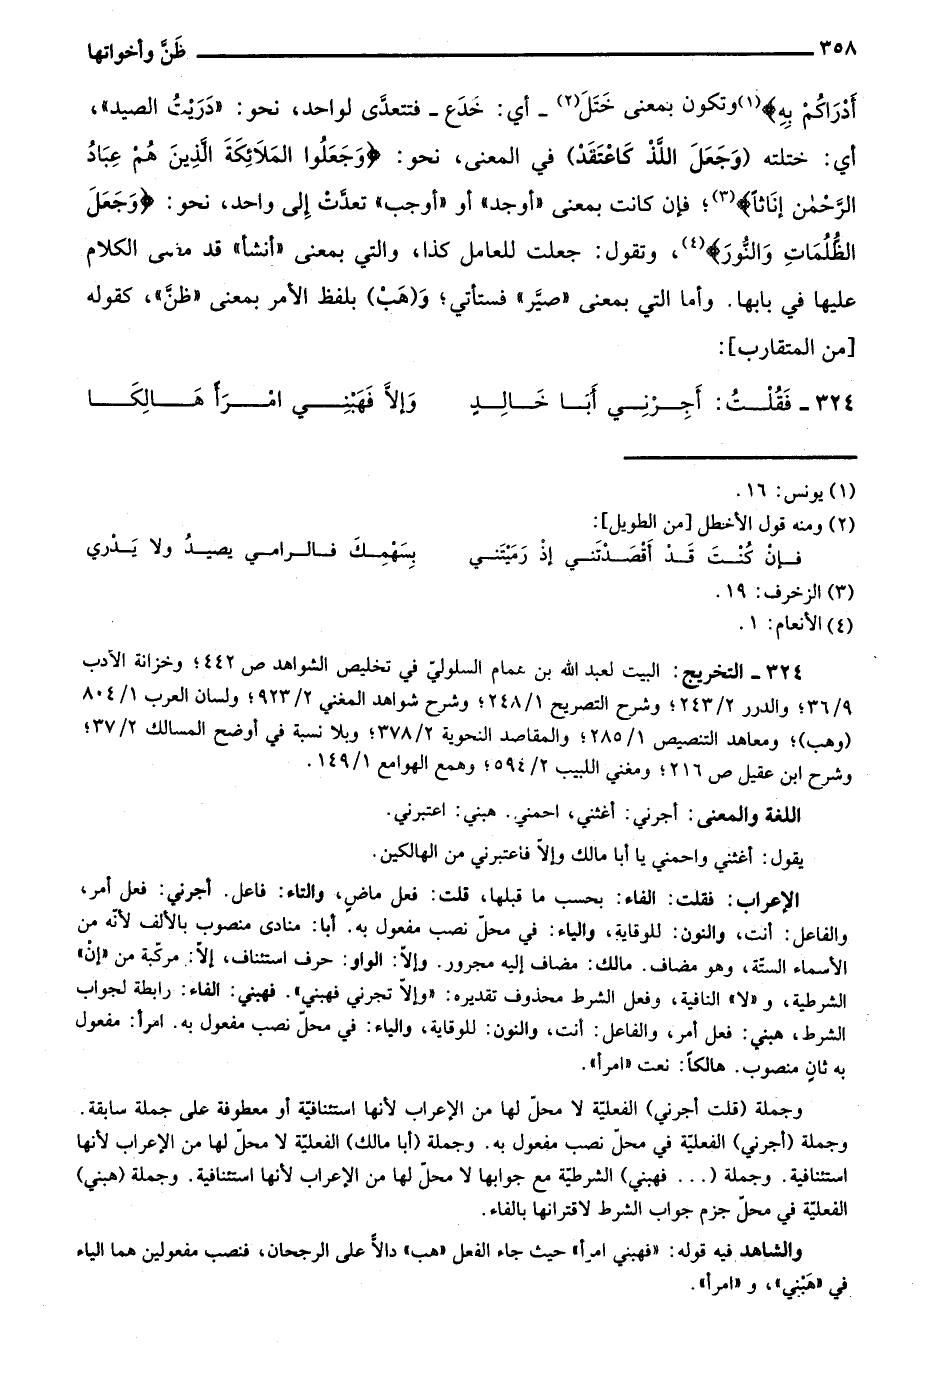 ٣٥٨ ظَنَّ وأخواتها
أَدْرَاكُمْ بِهِ﴾(١) وتكون بمعنى خَتَلَ(٢) ـ أي: خَدَع ـ فتتعدَّى لواحد، نحو: «دَرَيْتُ الصيد»،
أي: ختلته (وَجَعَلَ اللَّذْ كَاعْتَقَدْ) في المعنى، نحو: ﴿وَجَعَلُوا المَلاَئِكَةَ الَّذِينَ هُمْ عِبَادُ
الرَّحْمٰنِ إِنَاثاً﴾(٣)؛ فإن كانت بمعنى «أوجد» أو «أوجب» تعدَّتْ إلى واحد، نحو: ﴿وَجَعَلَ
الظُّلُمَاتِ وَالنُّورَ﴾(٤)، وتقول: جعلت للعامل كذا، والتي بمعنى «أنشأ» قد مضى الكلام
عليها في بابها. وأما التي بمعنى «صيَّر» فستأتي؛ وَ(هَبْ) بلفظ الأمر بمعنى «ظنَّ»، كقوله
[من المتقارب]:
٣٢٤ ـ فَقُلْتُ: أَجِرْنِي أَبَا خَالِدٍ وَإلاَّ فَهَبْنِي امْرَأً هَالِكَا
(١) يونس: ١٦.
(٢) ومنه قول الأخطل [من الطويل]:
فإنْ كُنْتَ قَدْ أَقْصَدْتَني إذْ رَمَيْتَني بِسَهْمِكَ فالرامي يصيدُ ولا يَدْري
(٣) الزخرف: ١٩.
(٤) الأنعام: ١.
٣٢٤ ـ التخريج: البيت لعبد الله بن عمام السلوليّ في تخليص الشواهد ص ٤٤٢؛ وخزانة الأدب
٣٦/٩؛ والدرر ٢٤٣/٢؛ وشرح التصريح ٢٤٨/١؛ وشرح شواهد المغني ٩٢٣/٢؛ ولسان العرب ٨٠٤/١
(وهب)؛ ومعاهد التنصيص ٢٨٥/١؛ والمقاصد النحوية ٣٧٨/٢؛ وبلا نسبة في أوضح المسالك ٣٧/٢؛
وشرح ابن عقيل ص ٢١٦؛ ومغني اللبيب ٥٩٤/٢؛ وهمع الهوامع ١٤٩/١.
اللغة والمعنى: أجرني: أغثني، احمني. هبني: اعتبرني.
يقول: أغثني واحمني يا أبا مالك وإلاّ فاعتبرني من الهالكين.
الإعراب: فقلت: الفاء: بحسب ما قبلها، قلت: فعل ماضٍ، والتاء: فاعل. أجرني: فعل أمر،
والفاعل: أنت، والنون: للوقاية، والياء: في محلّ نصب مفعول به. أبا: منادى منصوب بالألف لأنّه من
الأسماء الستّة، وهو مضاف. مالك: مضاف إليه مجرور. وإلاّ: الواو: حرف استئناف، إلاّ: مركّبة من «إنْ»
الشرطية، و «لا» النافية، وفعل الشرط محذوف تقديره: «وإلاّ تجرني فهبني». فهبني: الفاء: رابطة لجواب
الشرط، هبني: فعل أمر، والفاعل: أنت، والنون: للوقاية، والياء: في محلّ نصب مفعول به. امرأ: مفعول
به ثانٍ منصوب. هالكاً: نعت «امرأ».
وجملة (قلت أجرني) الفعليّة لا محلّ لها من الإعراب لأنها استئنافيّة أو معطوفة على جملة سابقة.
وجملة (أجرني) الفعليّة في محلّ نصب مفعول به. وجملة (أبا مالك) الفعليّة لا محلّ لها من الإعراب لأنها
استئنافية. وجملة (... فهبني) الشرطيّة مع جوابها لا محلّ لها من الإعراب لأنها استئنافية. وجملة (هبني)
الفعليّة في محلّ جزم جواب الشرط لاقترانها بالفاء.
والشاهد فيه قوله: «فهبني امرأ» حيث جاء الفعل «هب» دالاًّ على الرجحان، فنصب مفعولين هما الياء
في «هَبْني»، و «امرأ».